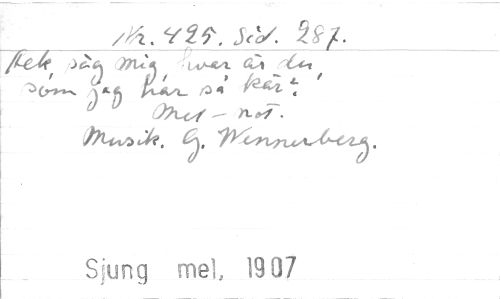 Nr. 425. Sid. 287.
säg mig hvar är du,
som jag har så kär?
Mel – not.
Musik. G. Wennerberg.
Sjung mel, 1907